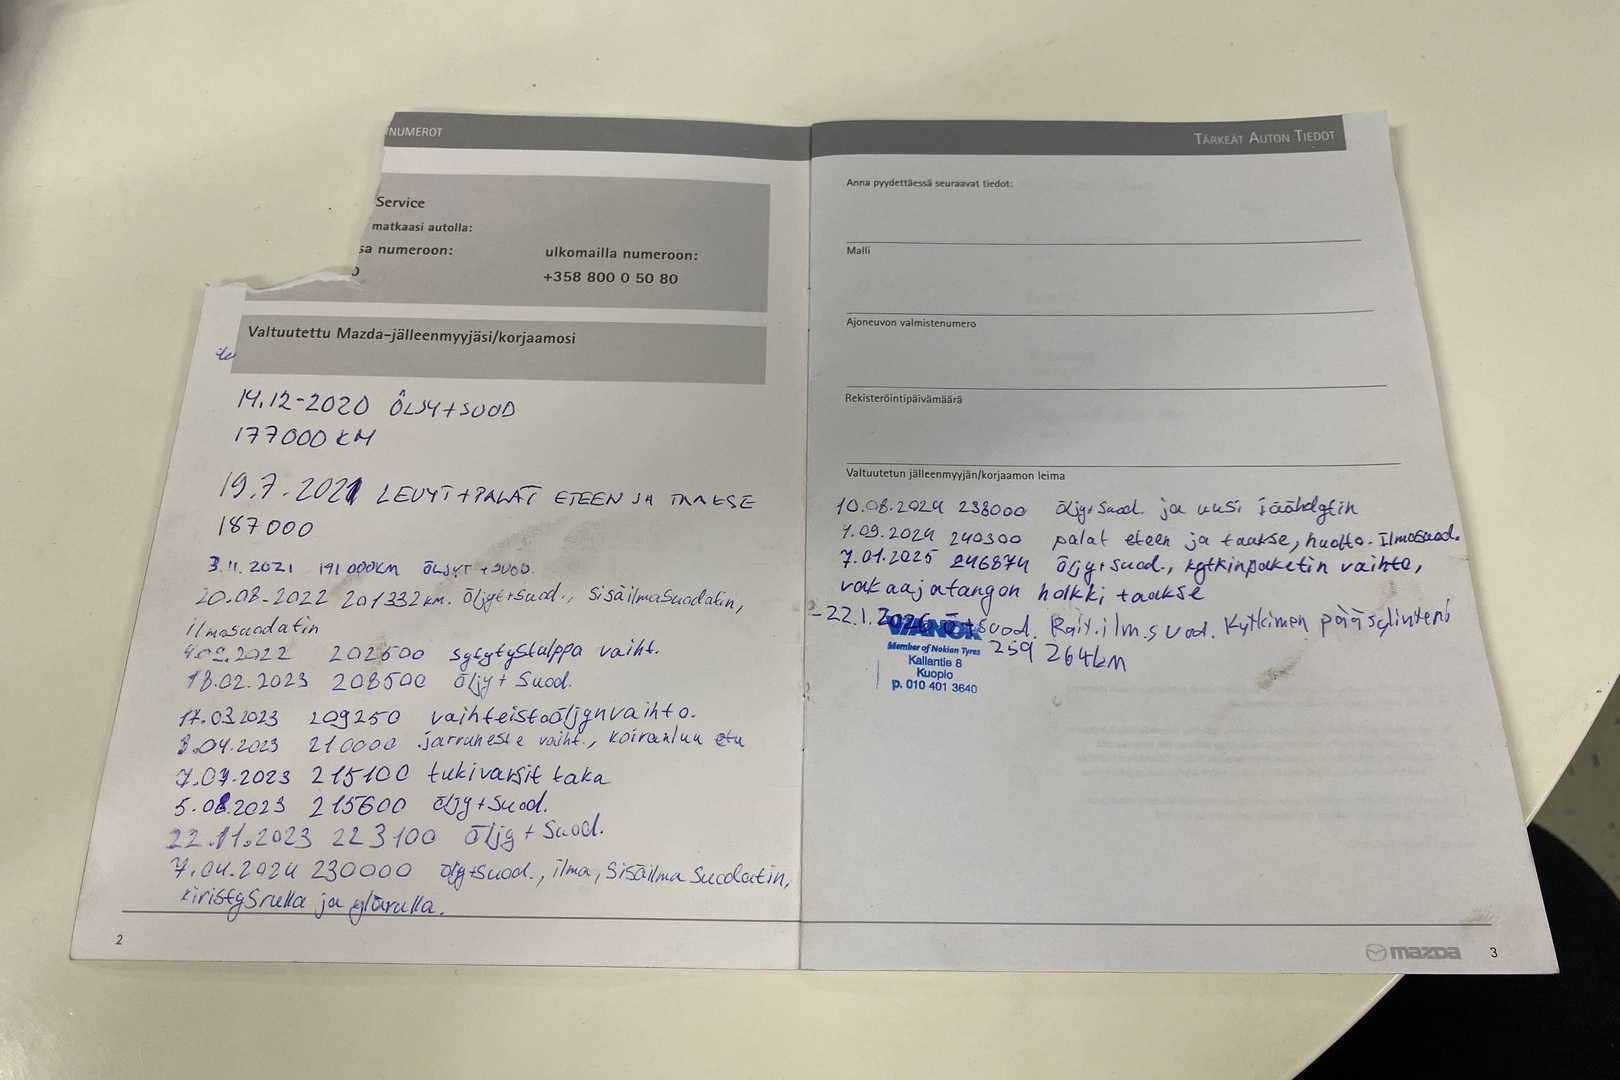 NUMEROT
Service
matkaasi autolla:
sa numeroon:
ulkomailla numeroon:
+358 800 0 50 80
Valtuutettu Mazda-jälleenmyyjäsi/korjaamosi
14.12-2020 ÖLJY+SUOD
177000 KM
19.7.2021 LEVYT+PALAT ETEEN JA TAAKSE
187000
3.11.2021 191000KM ÖLJYT+SUOD.
20.08-2022 201332km. öljyt+suod., sisäilmasuodatin,
ilmasuodatin
2022 202600 sytytystulppa vaiht.
18.02.2023 208500 öljy+suod.
17.03.2023 209250 vaihteistoöljynvaihto.
8.04.2023 210000 jarruneste vaiht., koiranluu etu
7.07.2023 215100 tukivarsit taka
5.08.2023 215600 öljy+suod.
22.11.2023 223100 öljy+suod.
7.04.2024 230000 öljy+suod., ilma, sisäilma suodatin,
kiristysrulla ja ylärulla.
2
TÄRKEÄT AUTON TIEDOT
Anna pyydettäessä seuraavat tiedot:
Malli
Ajoneuvon valmistenumero
Rekisteröintipäivämäärä
Valtuutetun jälleenmyyjän/korjaamon leima
10.08.2024 238000 öljy+suod. ja uusi jäähdytin
1.09.2024 240300 palat eteen ja taakse, huolto. Ilmasuod.
7.01.2025 246874 öljy+suod., kytkinpaketin vaihto,
vakaajatangon holkki taakse
-22.1.2026 Ö+suod. Rait.ilm.suod. Kytkimen pääsylinteri
259 264km
VIANOR
Member of Nokian Tyres
Kallantie 8
Kuopio
p. 010 401 3640
mazda
3